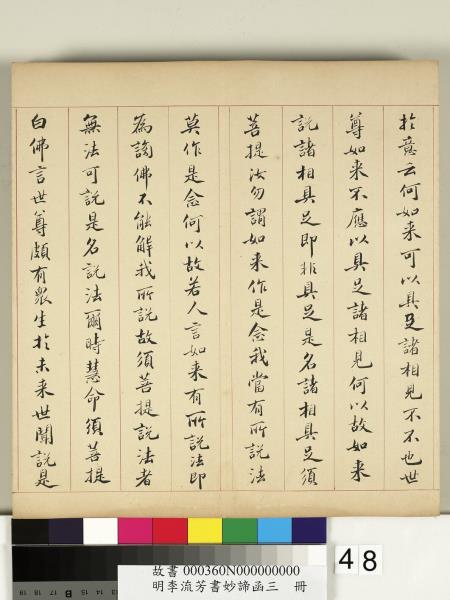 於意云何如来可以具足諸相見不不也世
尊如来不應以具足諸相見何以故如来
説諸相具足即非具足是名諸相具足須
菩提汝勿謂如来作是念我當有所説法
莫作是念何以故若人言如来有所説法即
為謗佛不能解我所説故須菩提説法者
無法可説是名説法爾時慧命須菩提
白佛言世尊頗有衆生於未来世聞説是
48
故書 000360N000000000
明李流芳書妙諦函三 冊
19 18 17 16 15 B